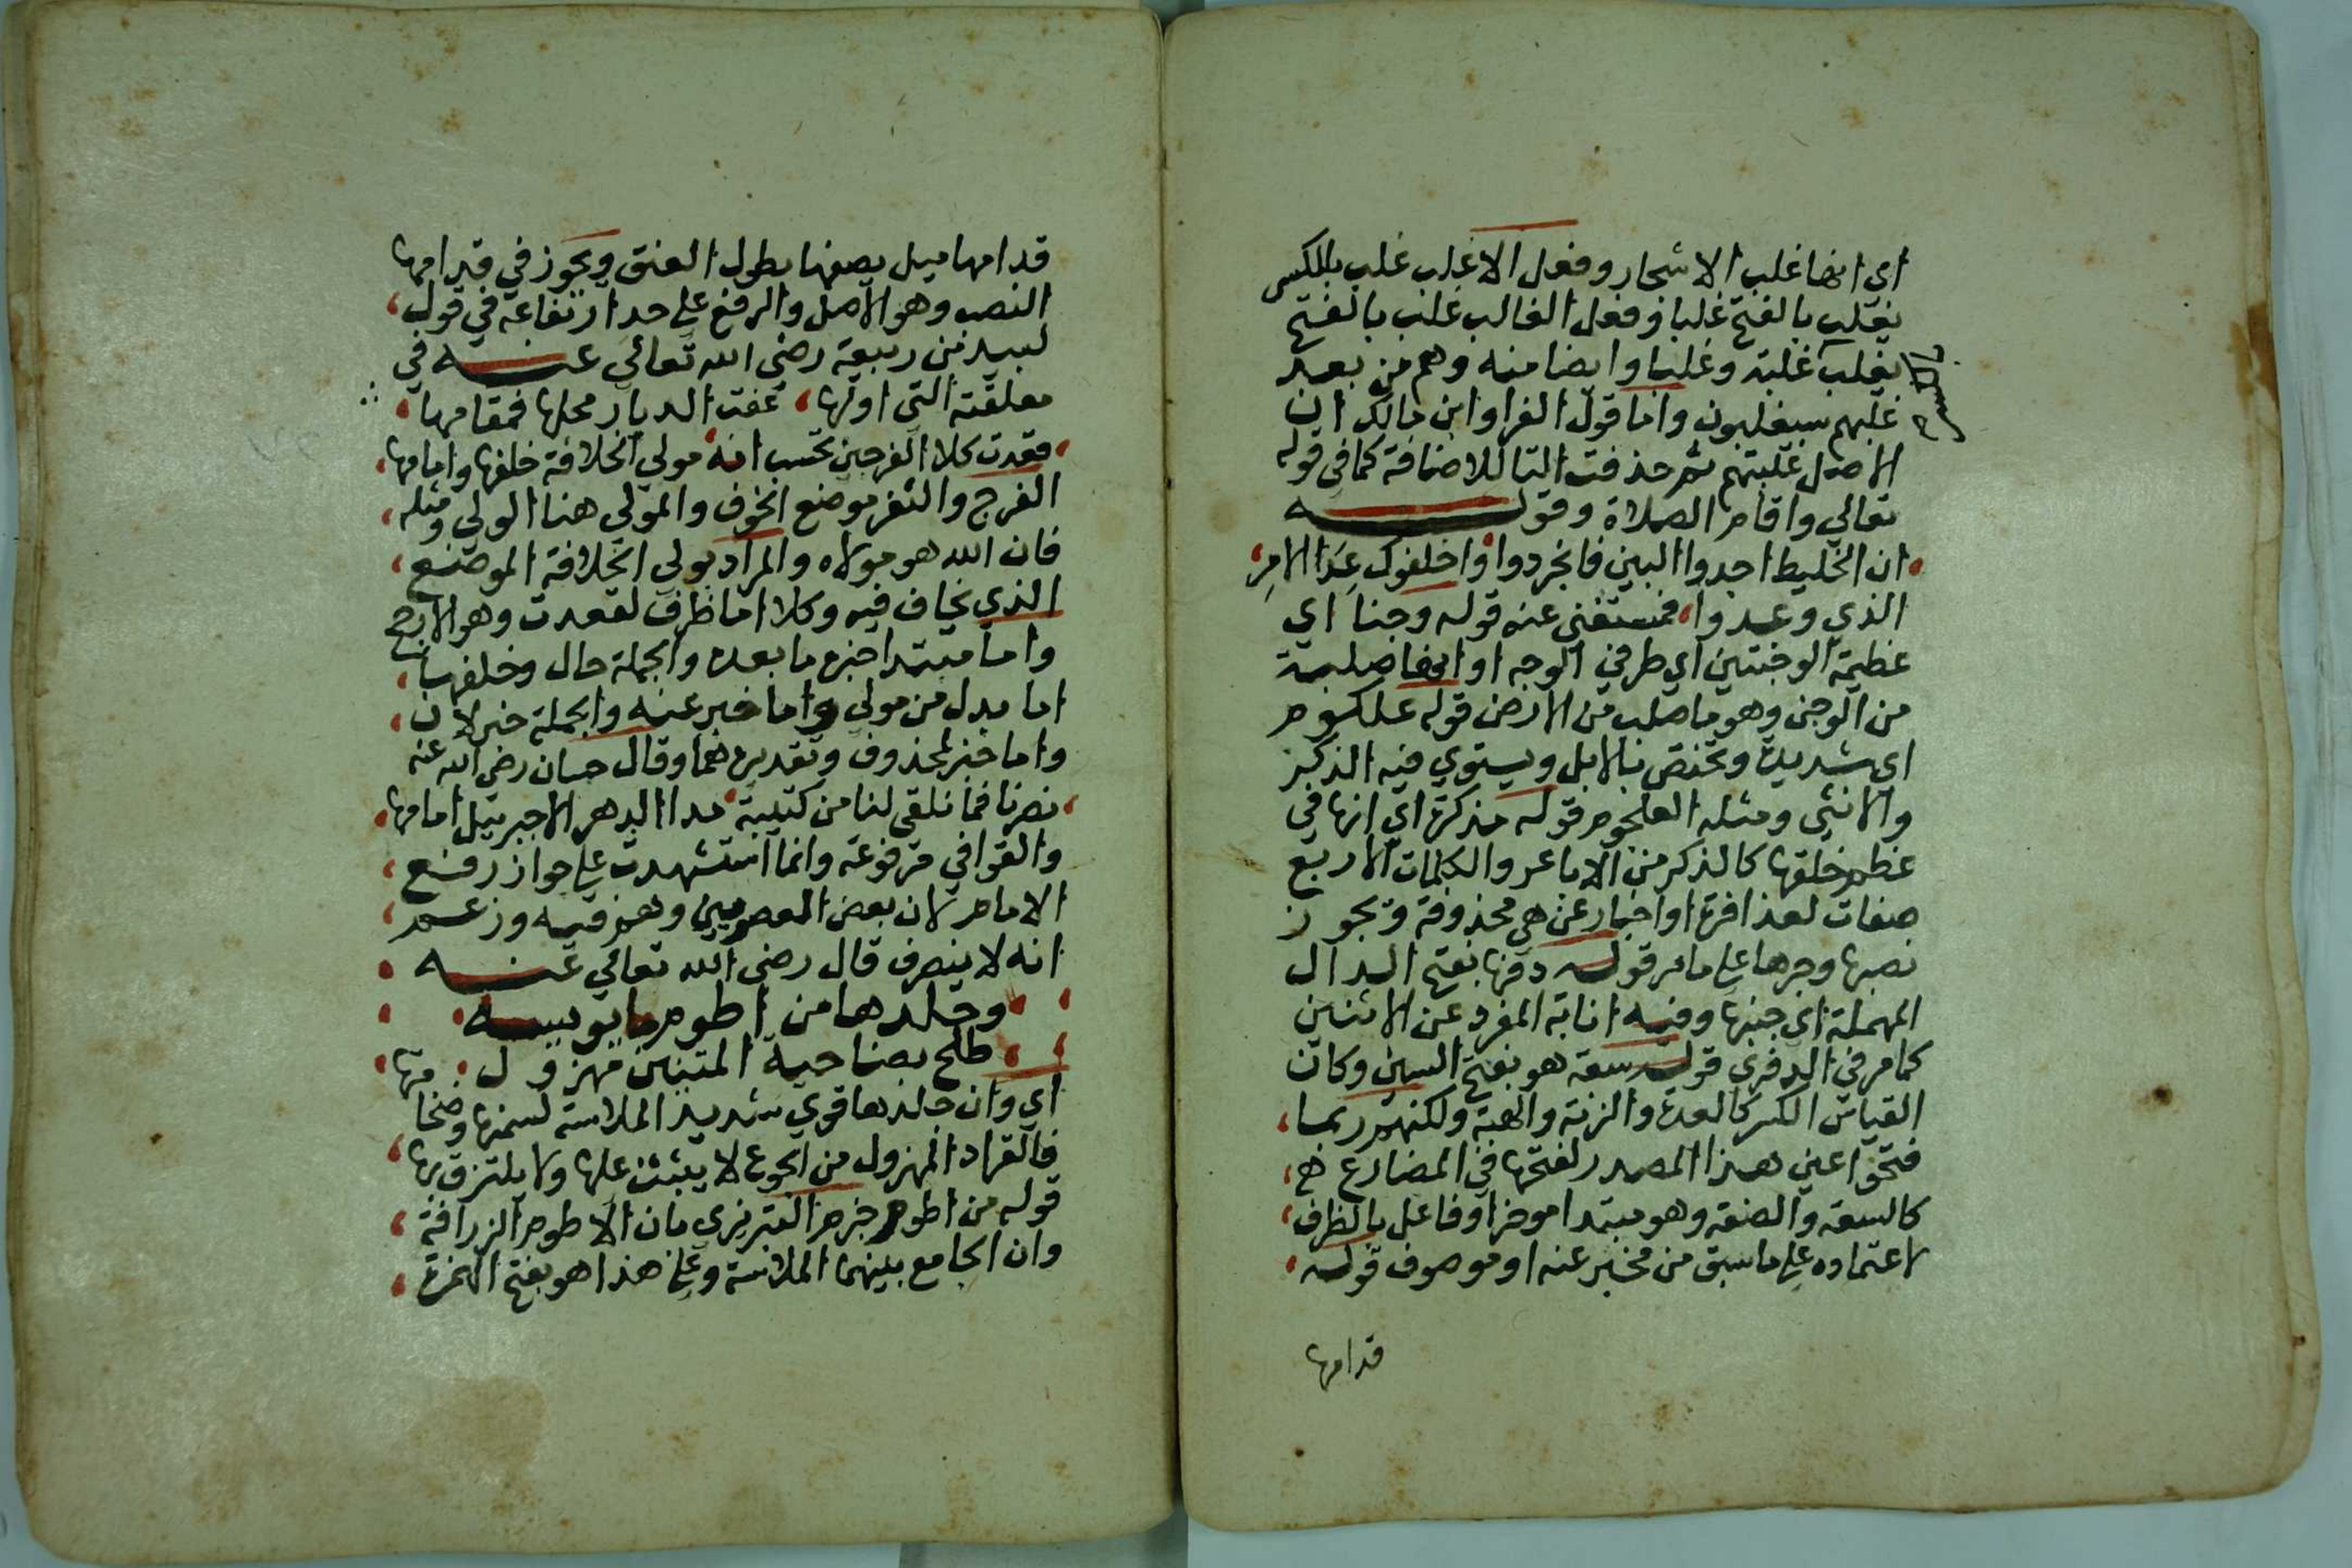 اي انها غلب الاشجار وفعل الاغلب غلب بالكسر
يغلب بالفتح غلبا وفعل الغالب غلب بالفتح
يغلب غلبة وغلبا وايضا منه وهم من بعد
غلبهم سيغلبون واما قول الفرا وابن مالك ان
الاصل غلبتهم ثم حذفت التا للاضافة كما في قوله
تعالي واقام الصلاة وقوله
ان الخليط اجدوا البين فانجردوا واخلفوك عِدَ الامرِ
الذي وعدوا فمستغني عنه قوله وجنا اي
عظيمة الوجنتين اي طرفي الوجه او انها صلبة
من الوجن وهو ما صلب من الارض قوله علكوم
اي شديدة وتختص بالابل ويستوي فيه الذكر
والانثي ومثله العلجوم قوله مذكرة اي انها في
عظم خلقها كالذكر من الاباعر والكلمات الاربع
صفات لعذافرة او اخبار عن هي محذوفة ويجوز
نصبها وجرها علي ما مر قوله دفها بفتح الدال
المهملة اي جنبها وفيه انابة المفرد عن الاثنين
كما مر في الدفري قوله سعة هو بفتح السين وكان
القياس الكسر كالعدة والزنة والهبة ولكنهم ربما
فتحوا عين هذا المصدر لفتحها في المضارع ح
كالسعة والضعة وهو مبتدا موخر او فاعل بالظرف
لاعتماده علي ما سبق من مخبر عنه او موصوف قوله
قدامها
قدامها ميل يصفها بطول العنق ويجوز في قدامها
النصب وهو الاصل والرفع علي حد ارتفاعه في قول
لبيد بن ربيعة رضي الله تعالي عنه في
معلقته التي اولها عفت الديار محلها فمقامها
فغدت كلا الفرجين تحسب انه مولي الخلافة خلفها وامامها
الفرج والثغر موضع الخوف والمولي هنا الولي ومثله
فان الله هو مولاه والمراد بولي الخلافة الموضع
الذي يخاف فيه وكلا اما ظرف لقعدت وهو الارجح
واما مبتدا خبره ما بعده والجملة حال وخلفها
اما بدل من مولي واما خبر عنه والجملة خبر لان
واما خبر لمحذوف وتقديره هما وقال حسان رضي الله عنه
نصرنا فما نلقي لنا من كتيبة مدا الدهر الا جبرئيل امامها
والقوافي مرفوعة وانما استشهدت علي جواز رفع
الامام لان بعض المعصومين وهم فيه وزعم
انه لا ينصرف قال رضي الله تعالي عنه
وجلدها من اطوم ما يوبسه
طلح بضاحية المتنين مهزول
اي وان جلدها قوي شديد الملاسة لسمنها وضخامتها
فالقراد المهزول من الجوع لا يثبت عليها ولا يلتزق بها
قوله من اطوم جزم التبريزي بان الاطوم الزرافة
وان الجامع بينهما الملاسة وعلي هذا هو بفتح الهمزة